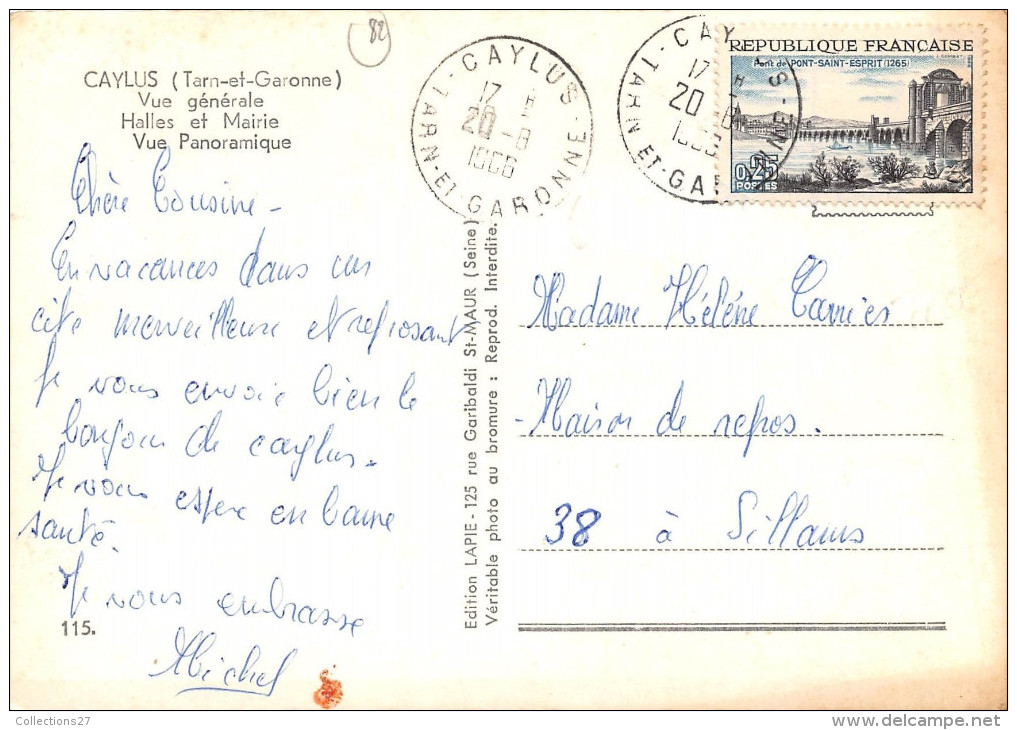 82
CAYLUS (Tarn-et-Garonne)
Vue générale
Halles et Mairie
Vue Panoramique
Chère Cousine -
En vacances dans un
cite merveilleuse et reposant
Je vous envoie bien le
bonjour de caylus.
Je vous espere en bonne
santé.
Je vous embrasse
Michel
115.
CAYLUS
17 H
20-8
1966
TARN-ET-GARONNE
Edition LAPIE - 125 rue Garibaldi St-MAUR (Seine)
Véritable photo au bromure : Reprod. Interdite.
CAYLUS
17 H
20-8
1966
TARN-ET-GARONNE
REPUBLIQUE FRANÇAISE
Pont de PONT-SAINT-ESPRIT (1265)
0,25
POSTES
Madame Hélène
- Maison de repos.
38 à Sillans
Collections27
delcampe.net